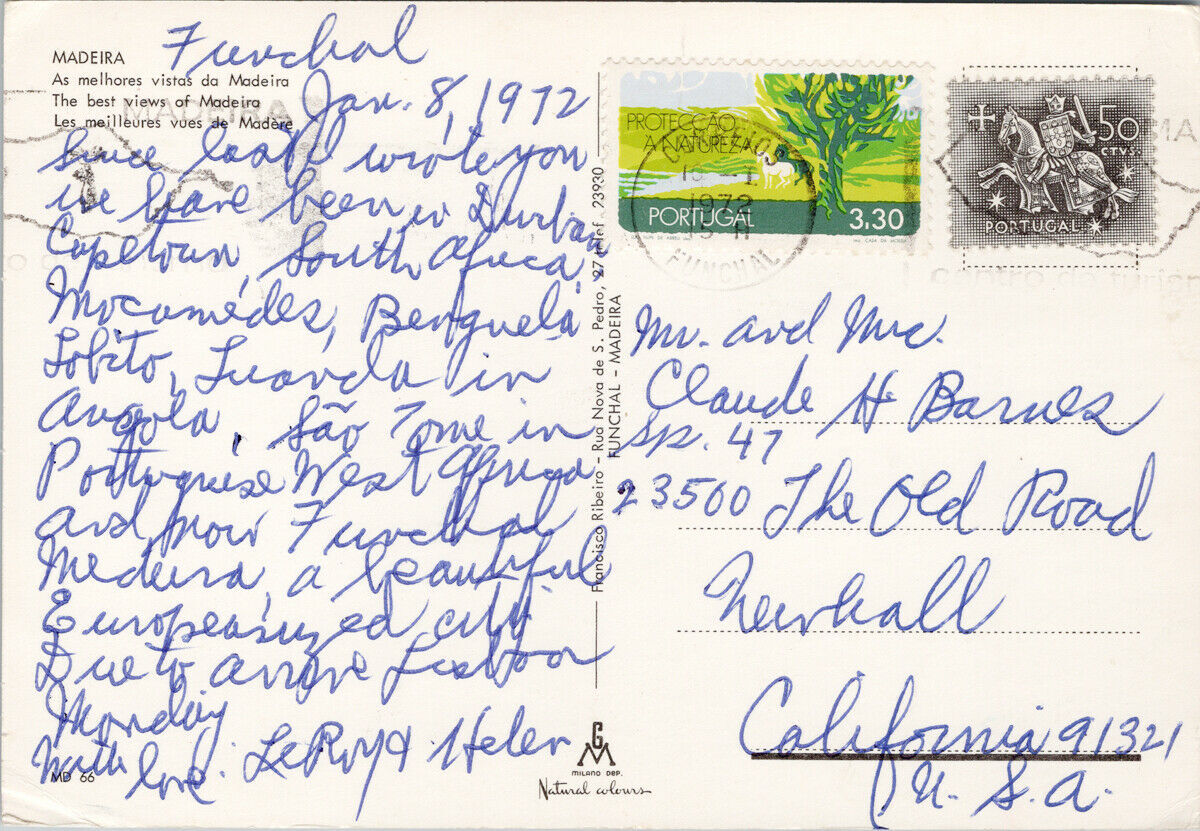 MADEIRA
As melhores vistas da Madeira
The best views of Madeira
Les meilleures vues de Madère
Funchal
Jan. 8, 1972
Since last wrote you
we have been in Durban
Capetown, South Africa,
Mocamédes, Benguela
Lobito, Luanda in
Angola, São Tome in
Portuguise West Africa
and now Funchal
Madeira, a beautiful
Europeanized city
Due to arrive Lisbon
Monday
With love. LeRoy & Helen
MD 66
Francisco Ribeiro - Rua Nova de S. Pedro, 27 Telef. 23930
FUNCHAL - MADEIRA
G
M
MILANO DEP.
Natural colours
PROTECÇÃO
A NATUREZA
PORTUGAL
3.30
50
CTVS.
PORTUGAL
1972
FUNCHAL
Mr. and Mrs.
Claude H Barnes
Sp. 47
23500 The Old Road
Newhall
California 91321
U.S.A.